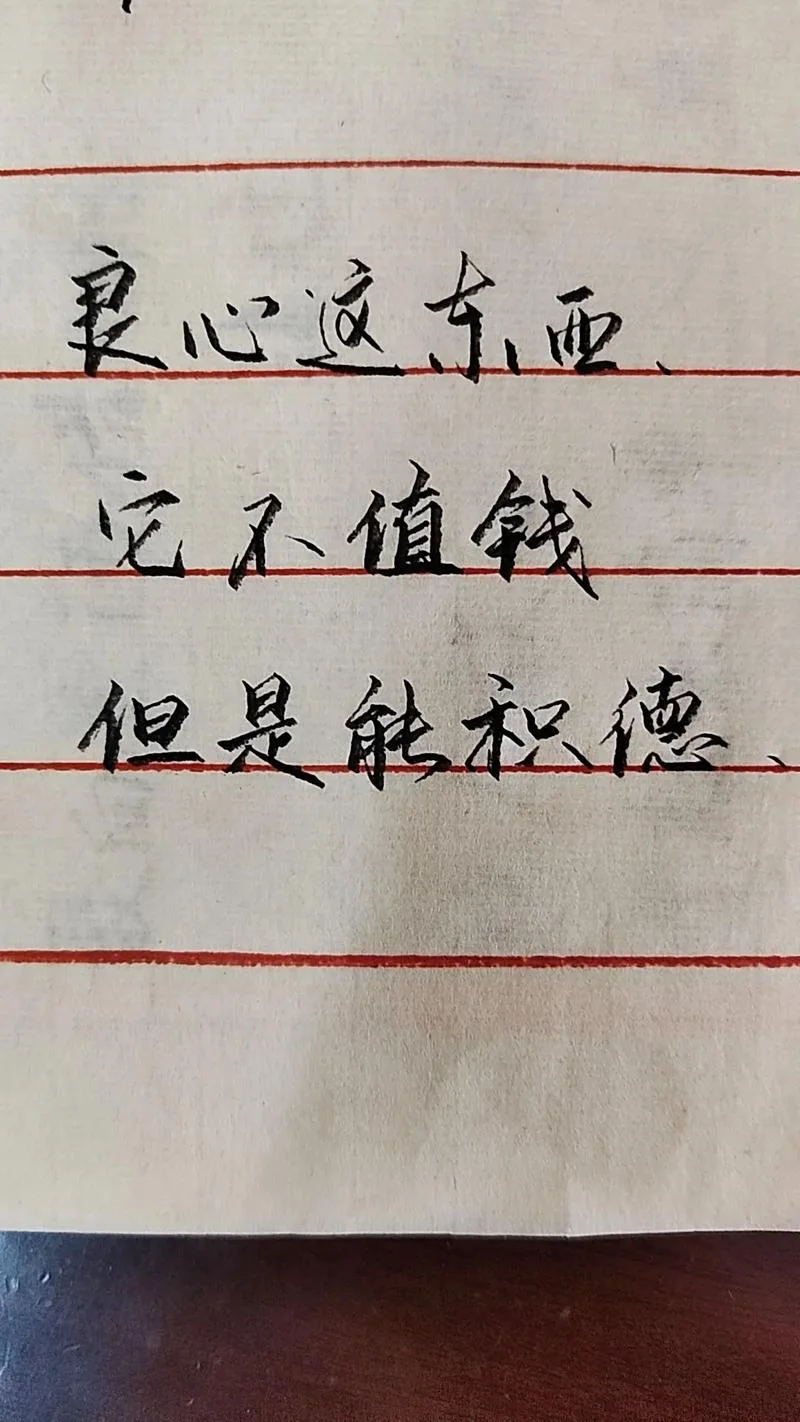 良心这东西、
它不值钱
但是能积德、